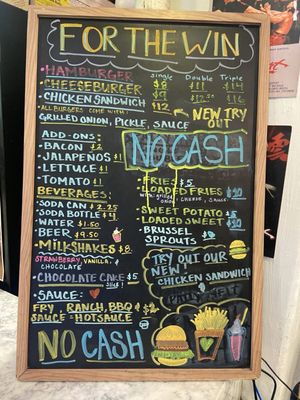 FOR THE WIN
Single Double Triple
• HAMBURGER $11 $14
• CHEESEBURGER $9 $16
• CHICKEN SANDWICH $12
ALL BURGERS COME WITH
GRILLED ONION, PICKLE, SAUCE
← NEW TRY
OUT
NO CASH
ADD-ONS:
• BACON $2
• JALAPEÑOS $1
• LETTUCE $1
• TOMATO $1
BEVERAGES:
• SODA CAN $2.25
• SODA BOTTLE $4
• WATER $1.50
• BEER $9.50
• MILKSHAKES $8
STRAWBERRY, VANILLA, &
CHOCOLATE
• CHOCOLATE CAKE $5
• SAUCE:
FRY SAUCE, RANCH, BBQ &
HOTSAUCE
NO CASH
• FRIES $5
• LOADED FRIES $10
ONION, CHEESE, SAUCE
• SWEET POTATO $5
• LOADED SWEET $10
• BRUSSEL
SPROUTS $9
TRY OUT OUR
NEW
CHICKEN SANDWICH
PATTY MELT